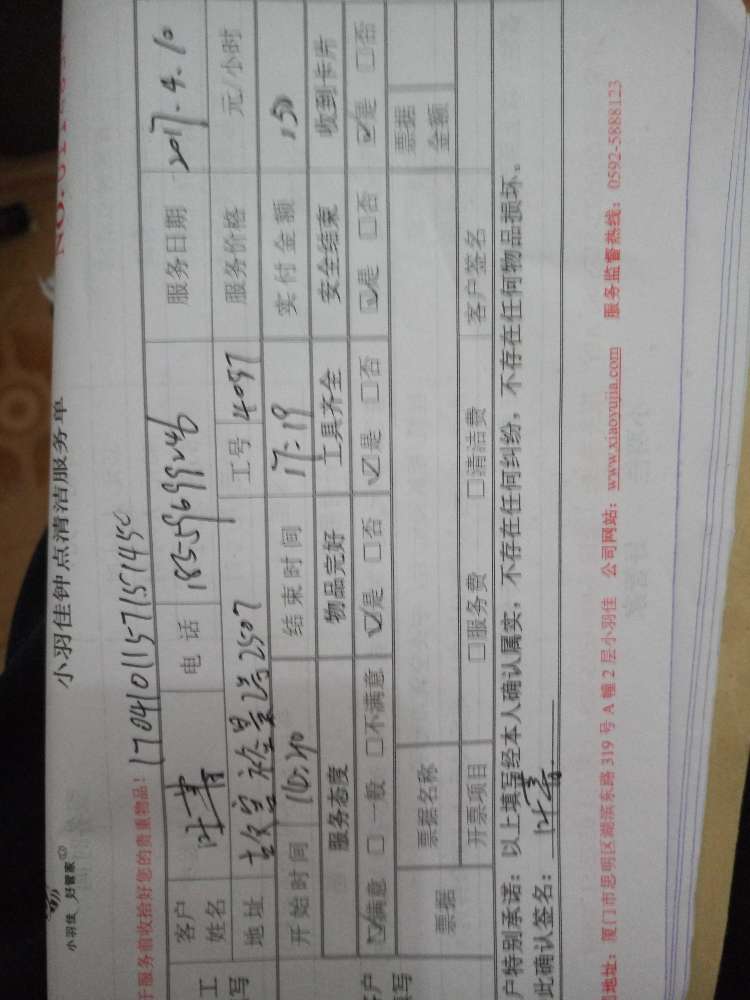 小羽佳 好管家
小羽佳钟点清洁服务单
于服务前收拾好您的贵重物品!
客户姓名 叶青 电话 服务日期 2017.4.10
地址 2507 工号 服务价格 元/小时
开始时间 结束时间 17:19 实付金额 150
服务态度 物品完好 工具齐全 安全结束 收到卡片
☑满意 □一般 □不满意 ☑是 □否 ☑是 □否 ☑是 □否 ☑是 □否
票据 票据名称 票据金额
开票项目 □服务费 □清洁费 客户签名
户特别承诺:以上填写经本人确认属实,不存在任何纠纷,不存在任何物品损坏。
此确认签名: 叶青
地址:厦门市思明区湖滨东路 319 号 A 幢 2 层小羽佳 公司网站:www.xiaoyujia.com 服务监督热线:0592-5888123